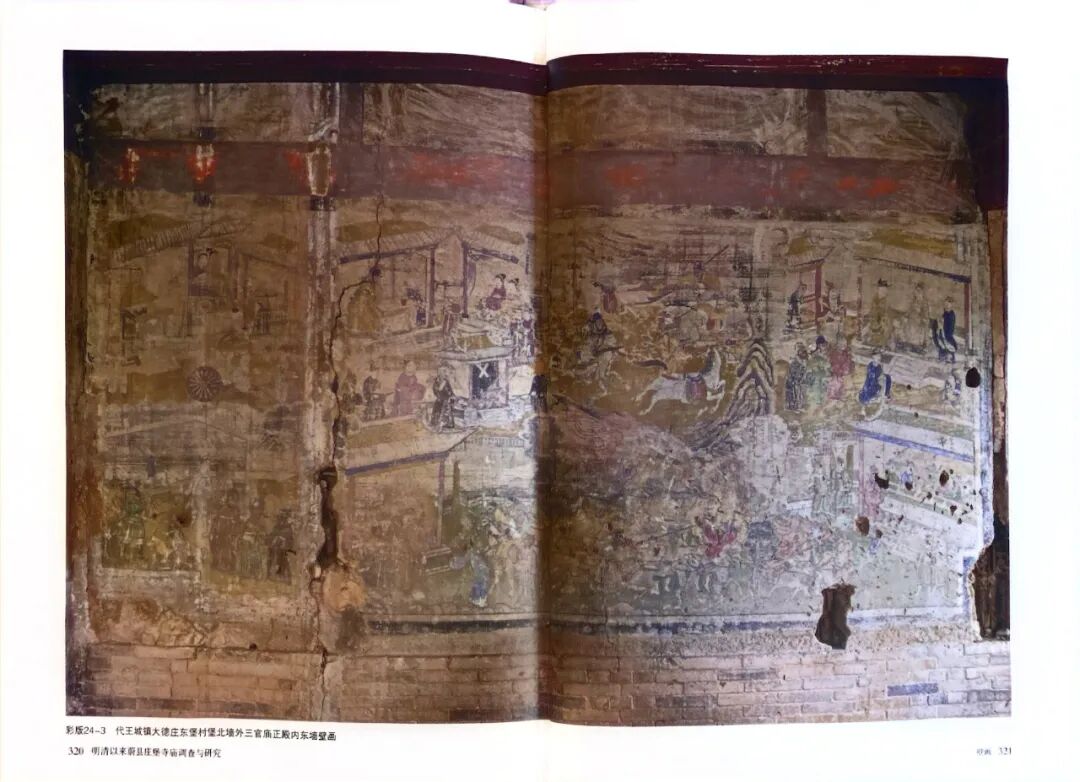 彩版24-3 代王城镇大德庄东堡村堡北墙外三官庙正殿内东墙壁画
320 明清以来蔚县庄堡寺庙调查与研究
壁画 321